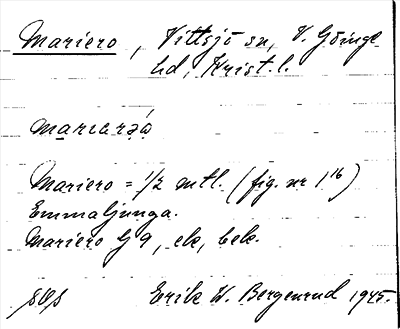 Mariero, Vittsjö sn, V. Göinge
hd, Krist. l.
Mariero = 1/2 mtl. (fig. nr 1¹⁶)
Emmaljunga.
Mariero G 9, ek, bek.
Erik W. Bergenrud 1945.